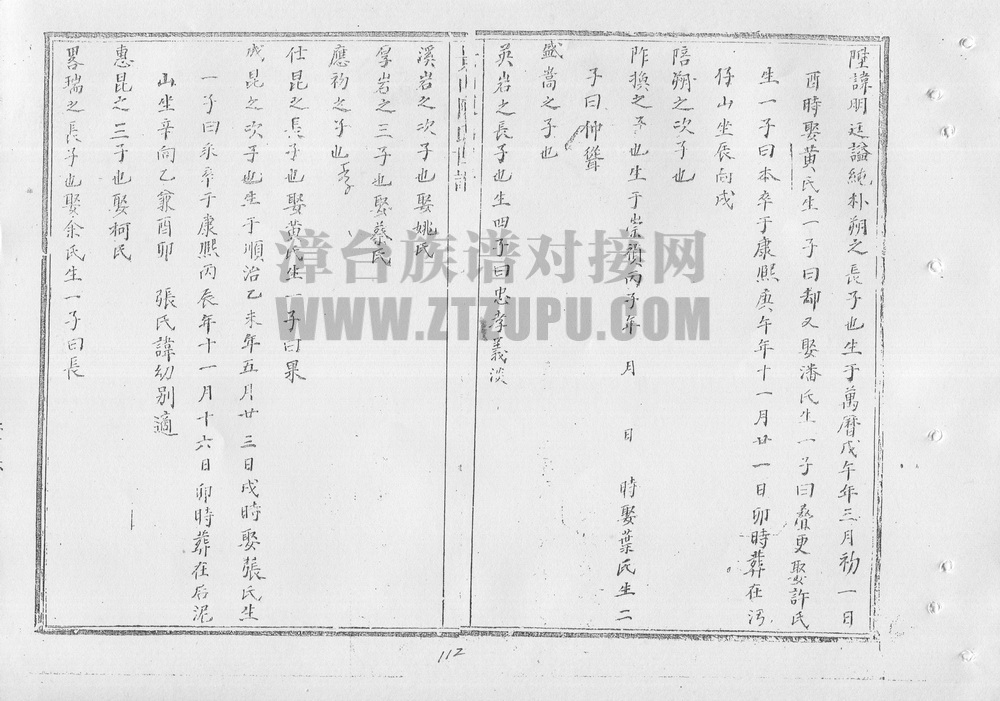 陞諱明廷謚純朴朔之長子也生于萬曆戊午年三月初一日
酉時娶黃氏生一子曰却又娶潘氏生一子曰叠更娶許氏
生一子曰本卒于康熙庚午年十一月廿一日卯時葬在沔
仔山坐辰向戌
陪朔之次子也
阼換之子也生于崇禎丙子年 月 日 時娶葉氏生二
子曰仲聳
盛嵩之子也
英岩之長子也生四子曰忠孝義淡
溪岩之次子也娶姚氏
厚岩之三子也娶蔡氏
應初之子也
仕昆之長子也娶黃氏生一子曰果
成昆之次子也生于順治乙未年五月廿三日戌時娶張氏生
一子曰 卒于康熙丙辰年十一月十六日卯時葬在后泥
山坐辛向乙兼酉卯 張氏諱幼別適
惠昆之三子也娶柯氏
畧瑞之長子也娶余氏生一子曰長
漳台族谱对接网
WWW.ZTZUPU.COM
112